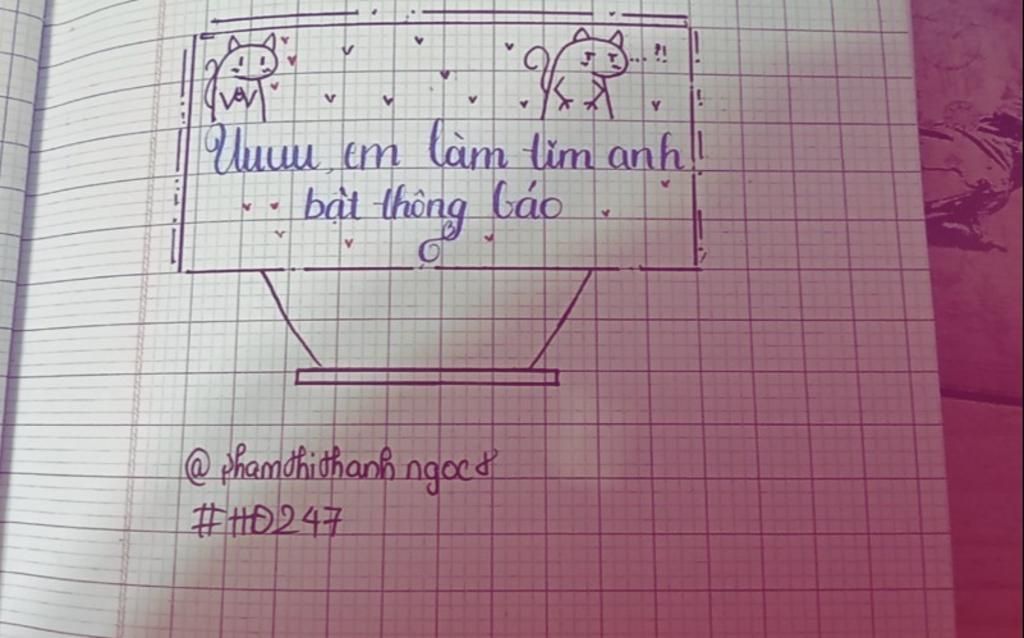 ...?!
Uuuu em làm tim anh
bật thông báo
@phamthithanhngoc8
#HĐ247